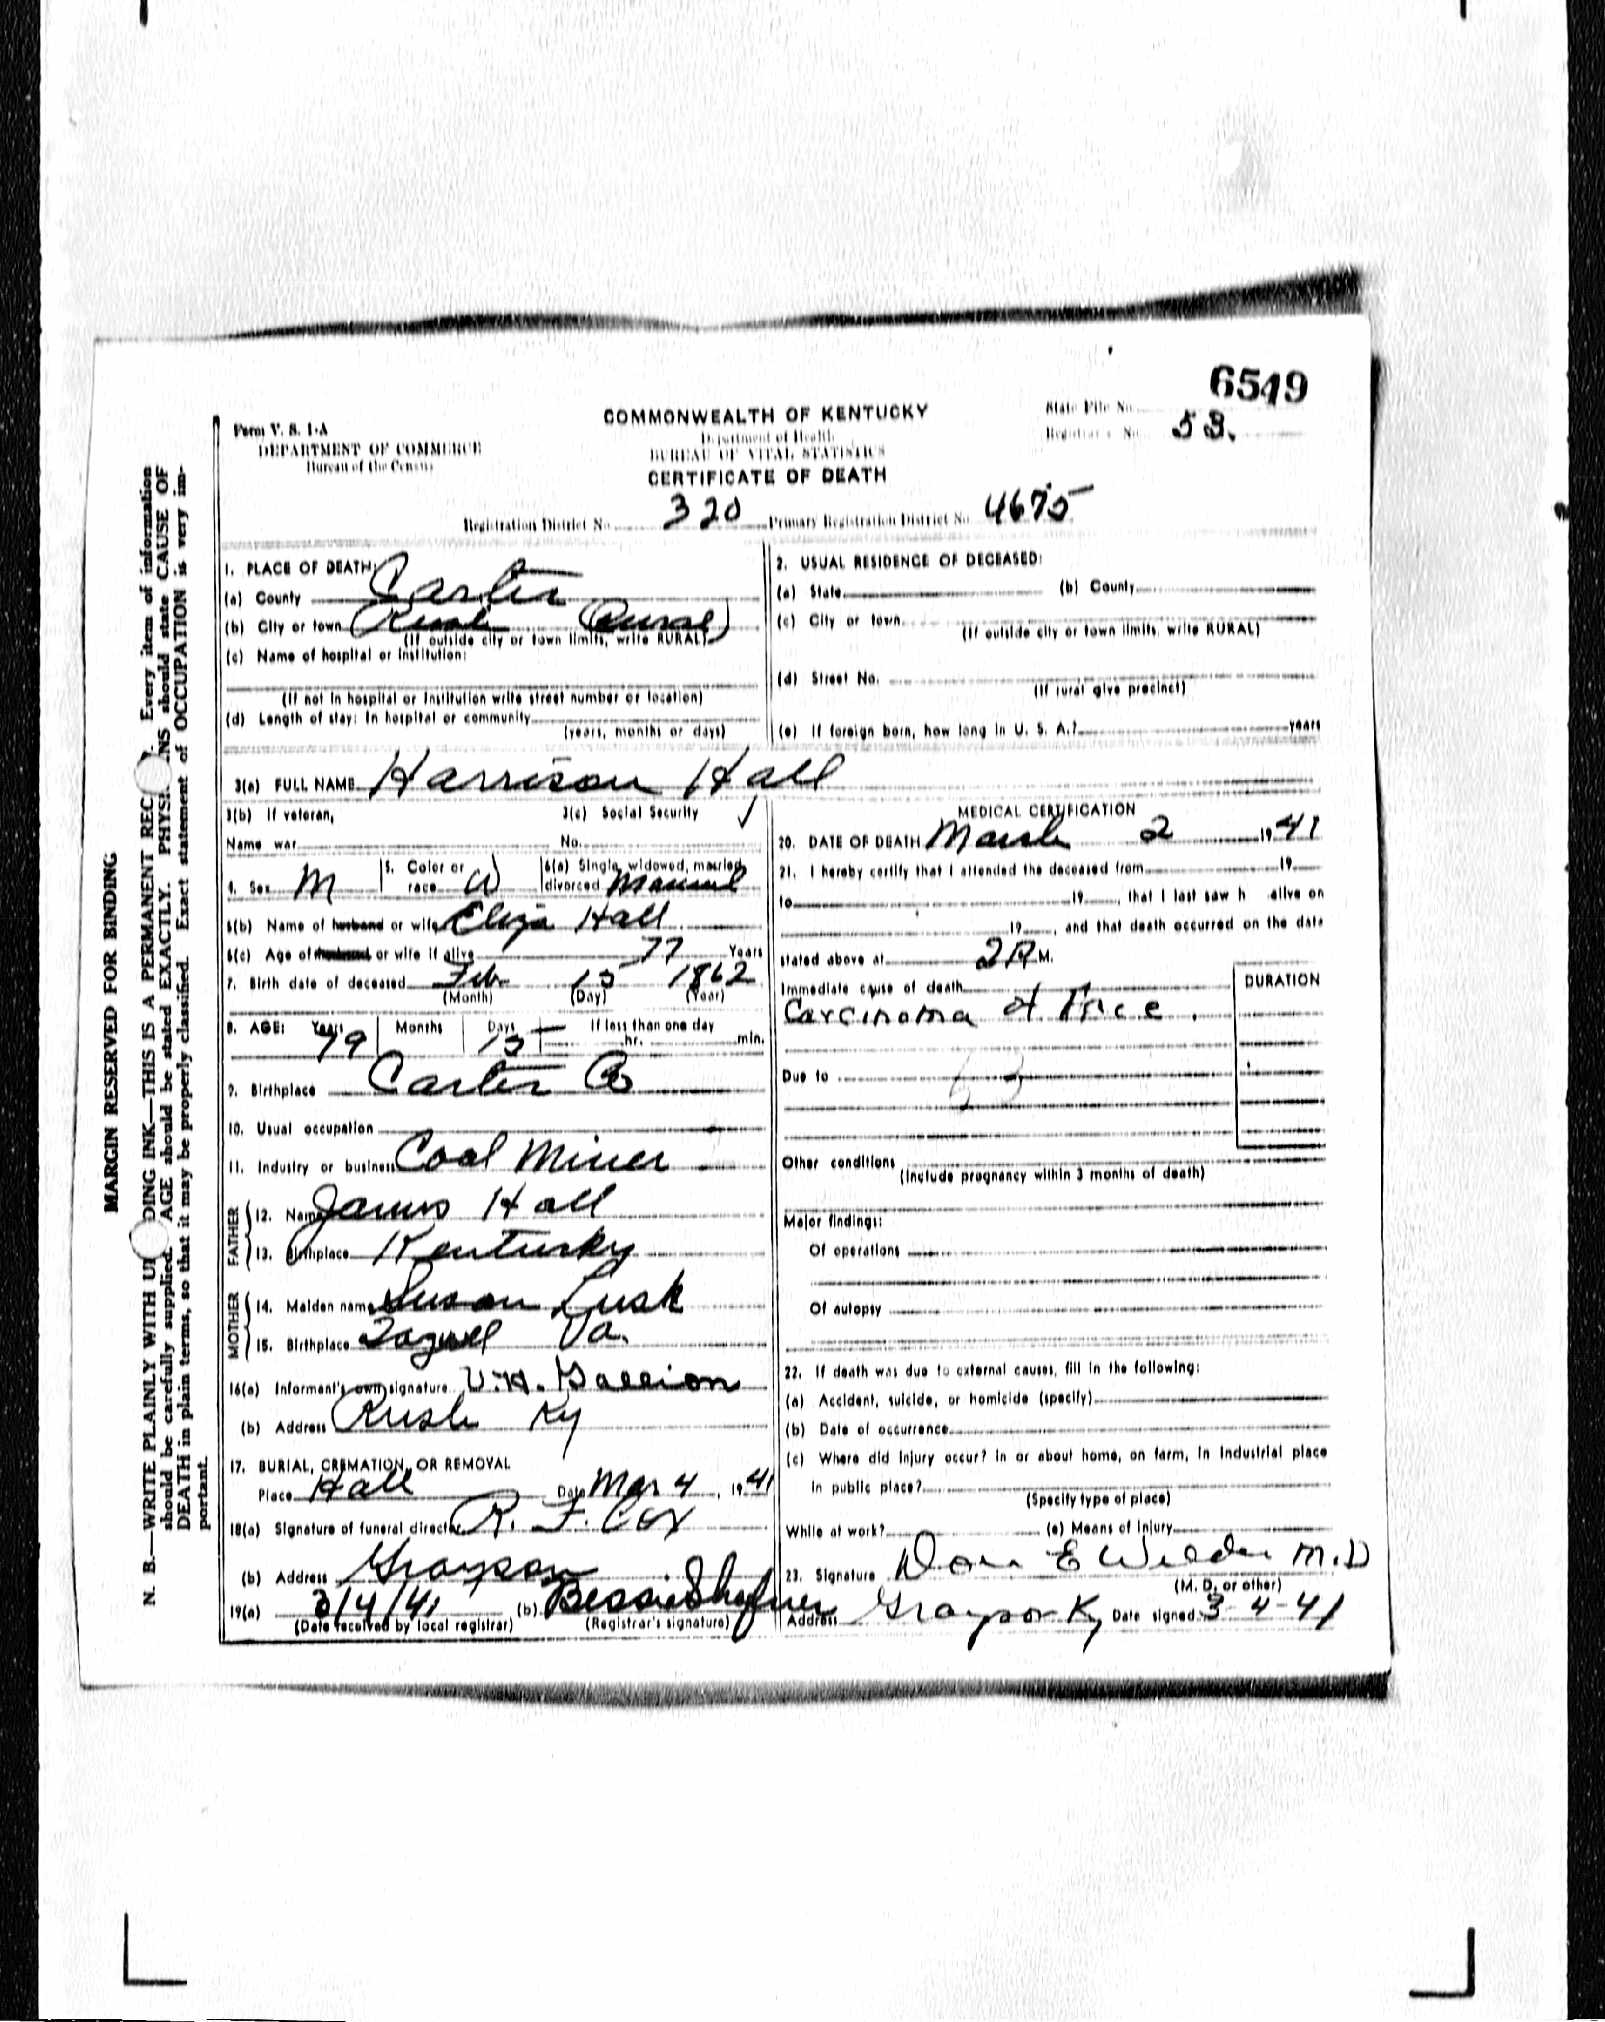 6549
COMMONWEALTH OF KENTUCKY
State File No.
Form V. S. 1-A
Department of Health
Registrar's No. 53.
DEPARTMENT OF COMMERCE
BUREAU OF VITAL STATISTICS
Bureau of the Census
CERTIFICATE OF DEATH
Registration District No. 320 Primary Registration District No. 4675
MARGIN RESERVED FOR BINDING
N. B.—WRITE PLAINLY WITH U DING INK—THIS IS A PERMANENT REC . Every item of information
should be carefully supplied. AGE should be stated EXACTLY. PHYSI NS should state CAUSE OF
DEATH in plain terms, so that it may be properly classified. Exact statement of OCCUPATION is very im-
portant.
1. PLACE OF DEATH:
(a) County Carter
(b) City or town Rush (Rural)
(If outside city or town limits, write RURAL)
(c) Name of hospital or institution:
(If not in hospital or institution write street number or location)
(d) Length of stay: In hospital or community
(years, months or days)
2. USUAL RESIDENCE OF DECEASED:
(a) State (b) County
(c) City or town
(If outside city or town limits, write RURAL)
(d) Street No.
(If rural give precinct)
(e) If foreign born, how long in U. S. A.? years
3(a) FULL NAME Harrison Hall
3(b) If veteran, 3(c) Social Security ✓
Name war No.
4. Sex M 5. Color or race W 6(a) Single, widowed, married, divorced Married
6(b) Name of husband or wife Eliza Hall
6(c) Age of husband or wife if alive 77 Years
7. Birth date of deceased Feb 15 1862
(Month) (Day) (Year)
8. AGE: Years 79 Months Days 15 If less than one day
hr. min.
9. Birthplace Carter Co
10. Usual occupation
11. Industry or business Coal Miner
FATHER
12. Name James Hall
13. Birthplace Kentucky
MOTHER
14. Maiden name Susan Lusk
15. Birthplace Tazwell Va.
16(a) Informant's own signature V.H. Gallion
(b) Address Rush Ky
17. BURIAL, CREMATION, OR REMOVAL
Place Hall Date Mar 4, 1941
18(a) Signature of funeral director R. F. Cox
(b) Address Grayson
19(a) 3/4/41 (b) Bessie
(Date received by local registrar) (Registrar's signature)
MEDICAL CERTIFICATION
20. DATE OF DEATH March 2 1941
21. I hereby certify that I attended the deceased from 19
to 19, that I last saw h alive on
19, and that death occurred on the date
stated above at 2 P M.
Immediate cause of death DURATION
Carcinoma of Face.
Due to
Other conditions
(Include pregnancy within 3 months of death)
Major findings:
Of operations
Of autopsy
22. If death was due to external causes, fill in the following:
(a) Accident, suicide, or homicide (specify)
(b) Date of occurrence
(c) Where did injury occur? In or about home, on farm, in industrial place
in public place?
(Specify type of place)
While at work? (e) Means of injury
23. Signature Don E Wilder M.D
(M. D. or other)
Address Grayson Ky Date signed 3-4-41